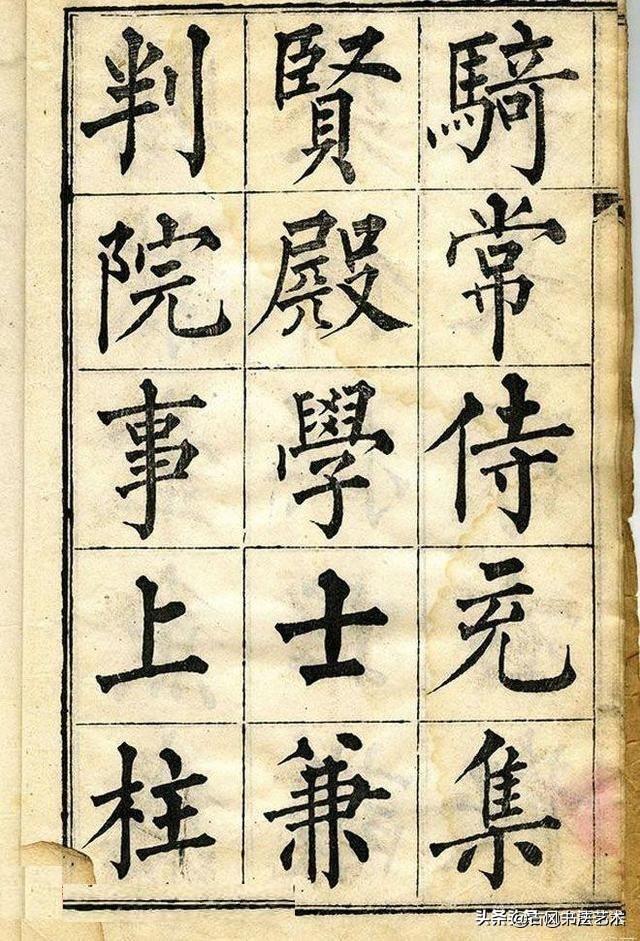 騎常侍充集
賢殿學士兼
判院事上柱
头条@古风书法艺术